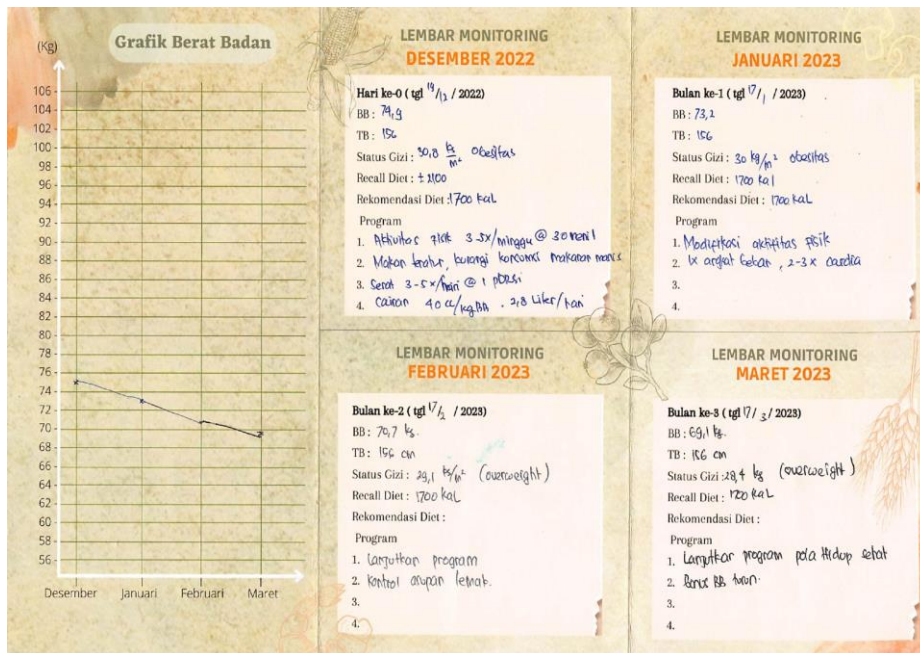 Grafik Berat Badan
(Kg)
106
104
102
100
98
96
94
92
90
88
86
84
82
80
78
76
74
72
70
68
66
64
62
60
58
56
Desember Januari Februari Maret
LEMBAR MONITORING
DESEMBER 2022
Hari ke-0 ( tgl 19/12 / 2022)
BB : 74,9
TB : 156
Status Gizi : 30,8 kg/m² Obesitas
Recall Diet : ± 2100
Rekomendasi Diet : 1700 kal
Program
1. Aktivitas fisik 3-5x/minggu @ 30 menit
2. Makan teratur, kurangi konsumsi makanan manis
3. Serat 3-5x/hari @ 1 porsi
4. Cairan 40 cc/kgBB . 2,8 Liter/hari
LEMBAR MONITORING
JANUARI 2023
Bulan ke-1 ( tgl 17/1 / 2023)
BB : 73,2
TB : 156
Status Gizi : 30 kg/m² obesitas
Recall Diet : 1700 kal
Rekomendasi Diet : 1700 kal
Program
1. Modifikasi aktifitas fisik
2. 1x angkat beban , 2-3x cardio
3.
4.
LEMBAR MONITORING
FEBRUARI 2023
Bulan ke-2 ( tgl 17/2 / 2023)
BB : 70,7 kg.
TB : 156 cm
Status Gizi : 29,1 kg/m² (overweight)
Recall Diet : 1700 kal
Rekomendasi Diet :
Program
1. Lanjutkan program
2. kontrol asupan lemak.
3.
4.
LEMBAR MONITORING
MARET 2023
Bulan ke-3 ( tgl 17/3 / 2023)
BB : 69,1 kg.
TB : 156 cm
Status Gizi : 28,4 kg (overweight)
Recall Diet : kal
Rekomendasi Diet :
Program
1. Lanjutkan program pola hidup sehat
2. BB turun.
3.
4.